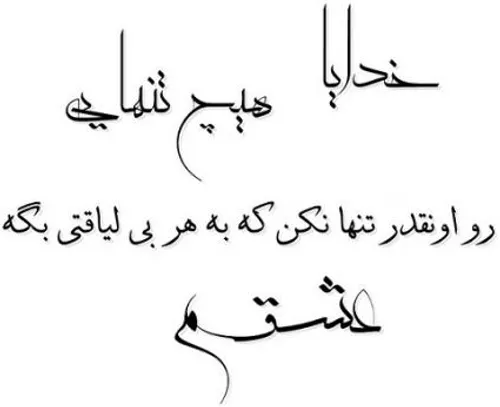 خدایا هیچ تنهایی
رو اونقدر تنها نکن که به هر بی لیاقتی بگه
عشقم